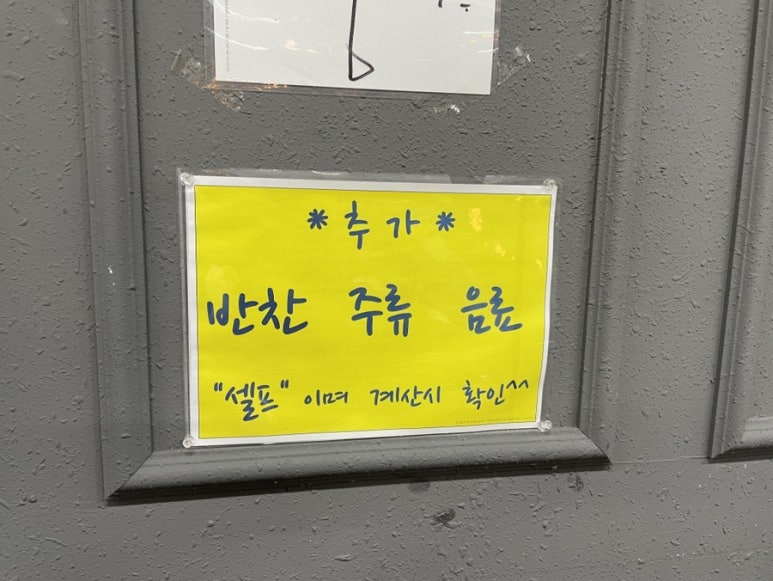 * 추가 *
반찬 주류 음료
"셀프" 이며 계산시 확인^^